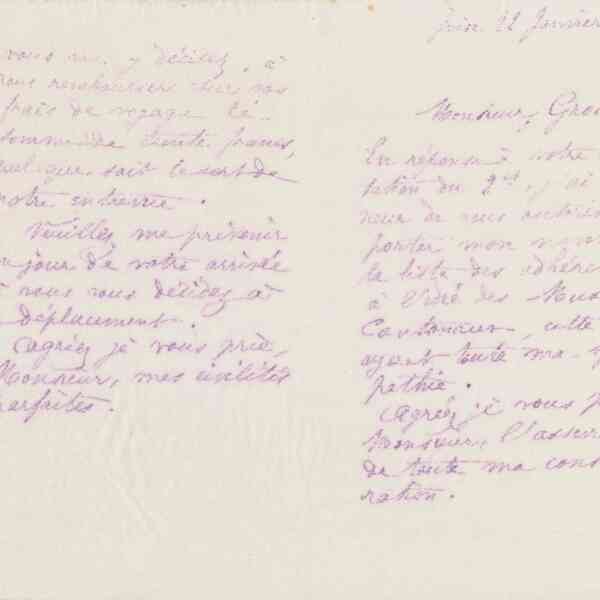 vous me. y décidez, à
vous rembourser tous vos
frais de voyage la
somme de trente francs,
quel que soit le sort de
notre entrevue.
Veuillez me prévenir
du jour de votre arrivée
si vous vous décidez à
déplacement.
Agréez je vous prie,
Monsieur, mes civilités
parfaites.
22 Janvier
Monsieur,
En réponse à votre
tation du 2 ct, j'ai
neur de vous autoriser
porter mon nom
la liste des adhére
à l'idée des Mus
Cantonaux, cette
ayant toute ma
pathie.
Agréez je vous p
Monsieur, l'assur
de toute ma cons
ration.